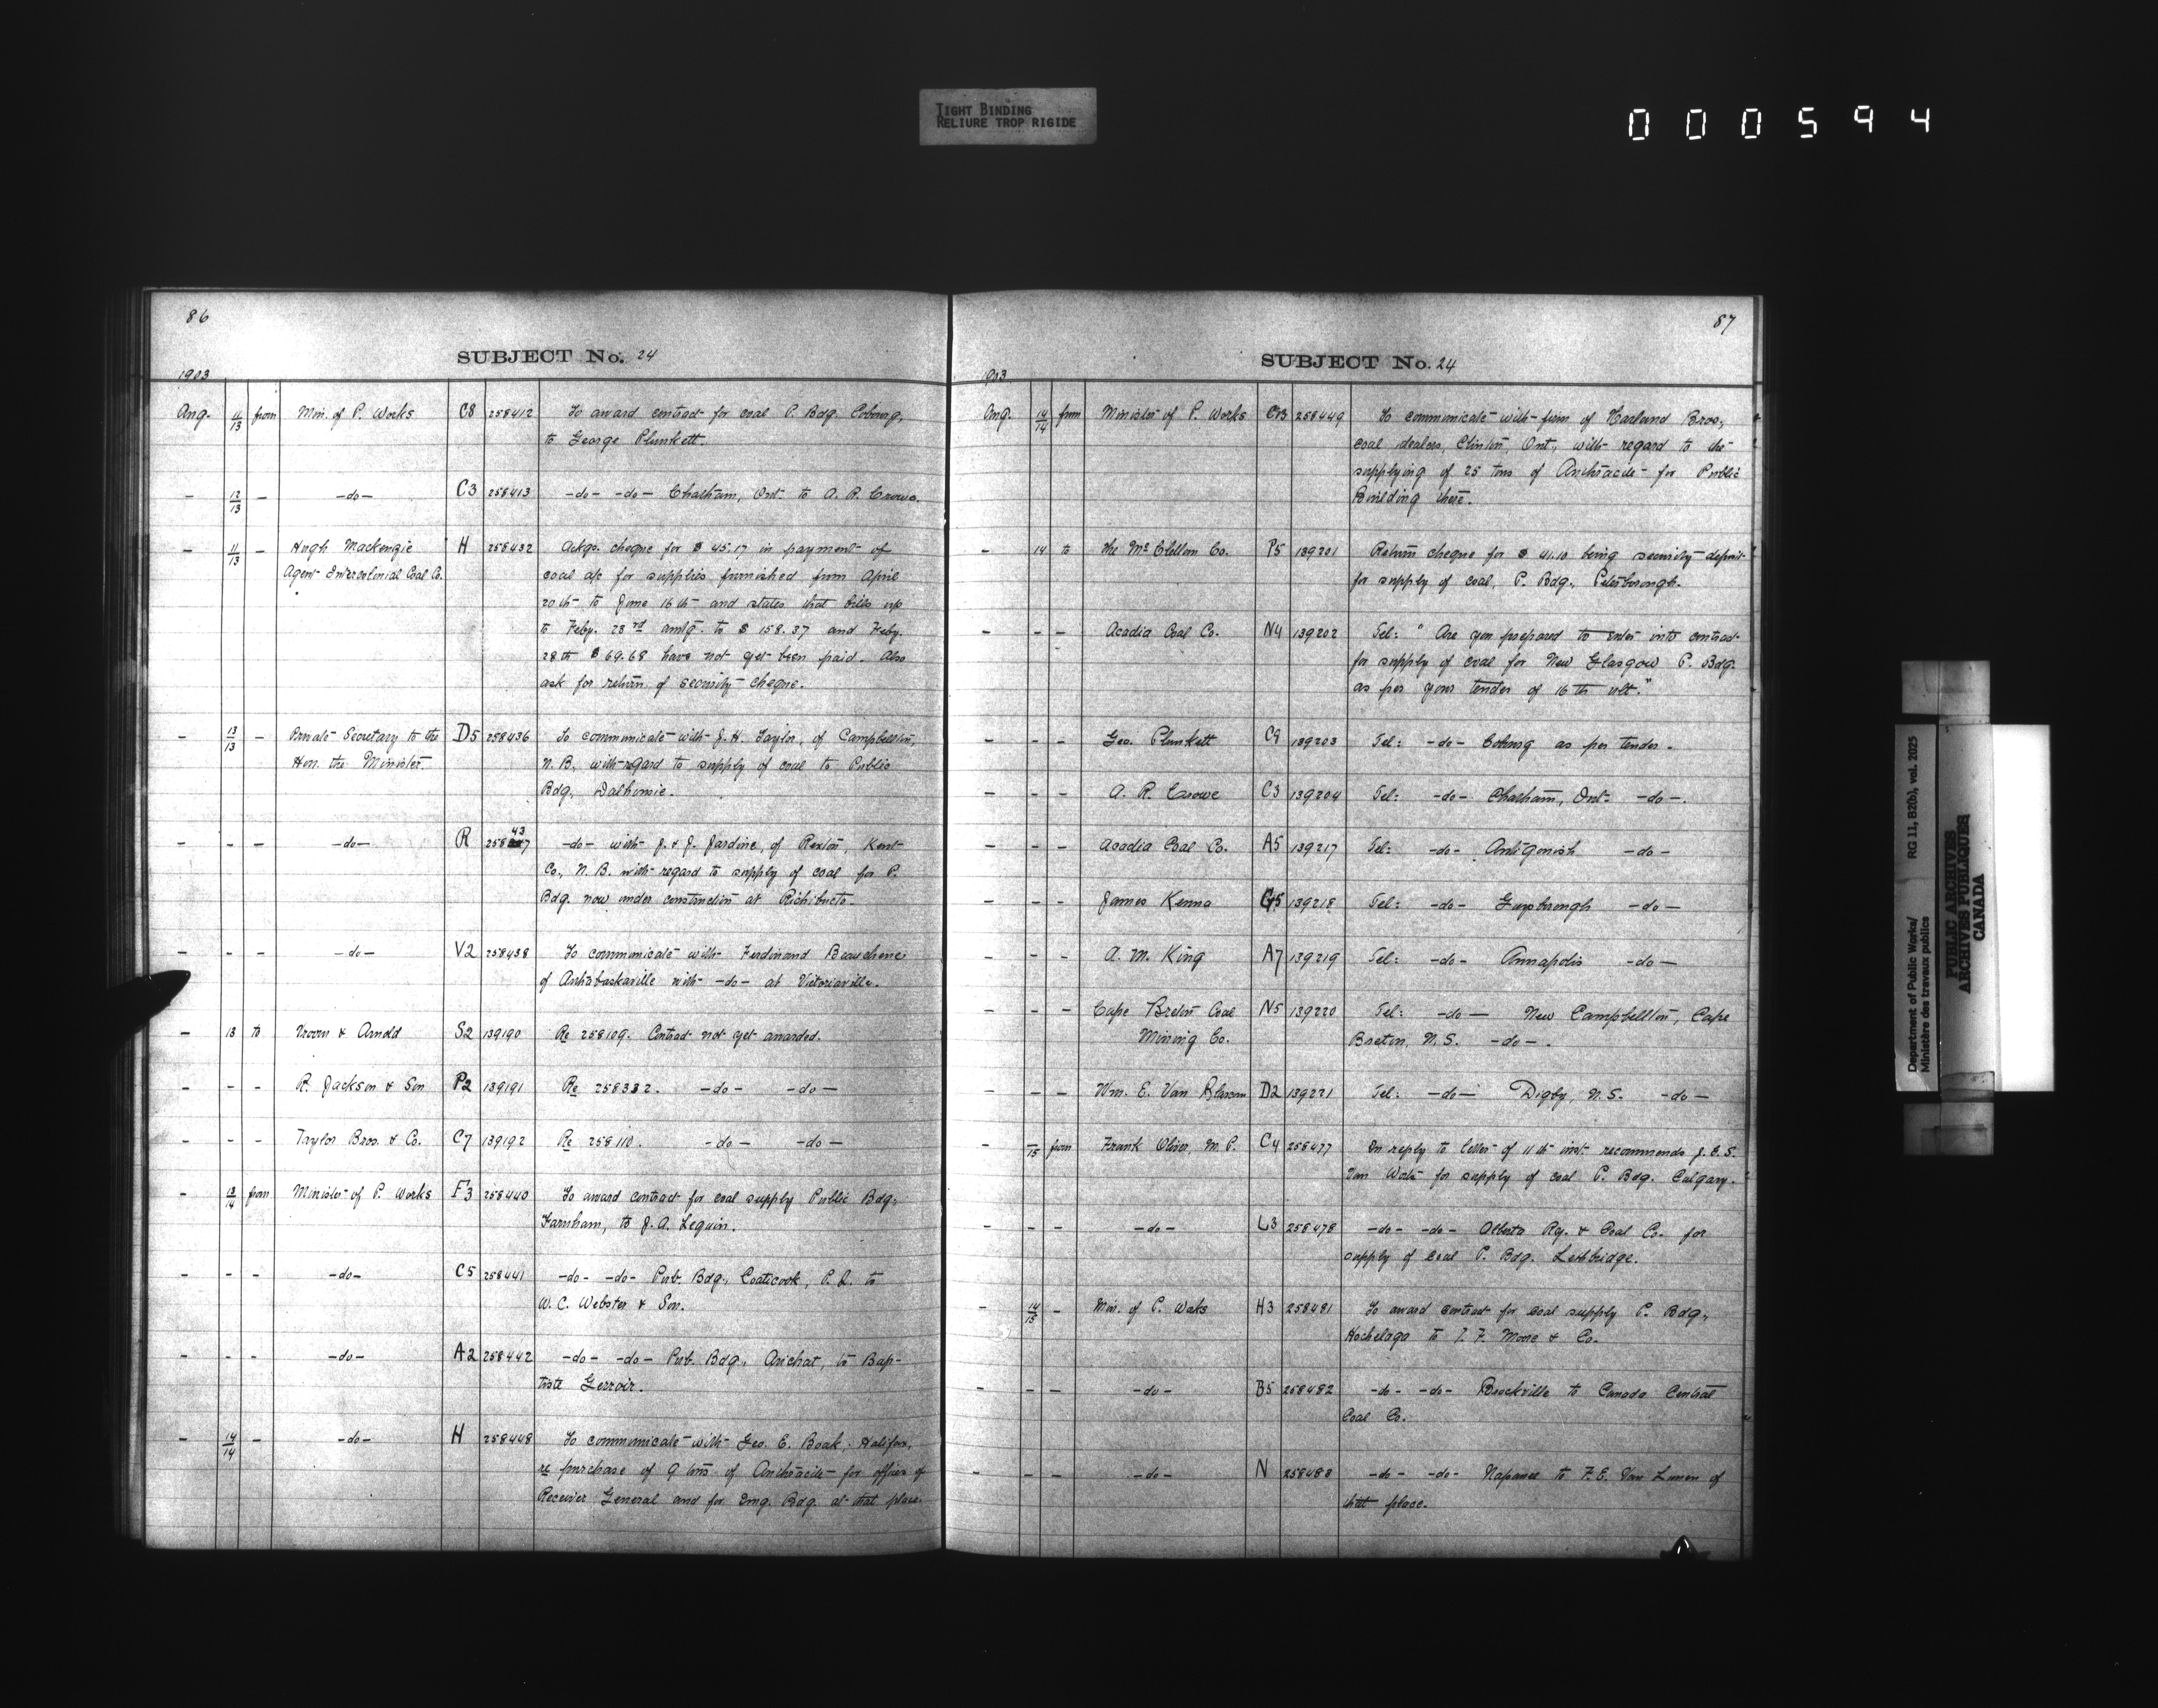 TIGHT BINDING
RELIURE TROP RIGIDE
000594
86
SUBJECT No. 24
1903
Aug. 11/13 from Min. of P. Works C8 258412 To award contract for coal P. Bdg. Cobourg,
to George Plunkett.
- 12/13 - -do- C3 258413 -do- -do- Chatham, Ont. to A. R. Crowe.
- 11/13 - Hugh Mackenzie H 258432 Ackgs. cheque for $45.17 in payment of
Agent Intercolonial Coal Co. coal a/c for supplies furnished from April
20th to June 16th and states that bills up
to Feby. 23rd amtg. to $158.37 and Feby.
28th $69.68 have not yet been paid. Also
ask for return of security cheque.
- 13/13 - Private Secretary to the D5 258436 To communicate with J. H. Taylor, of Campbellton,
Hon. the Minister. N. B., with regard to supply of coal to Public
Bdg., Dalhousie.
- - - -do- R 258437 -do- with J. & J. Jardine, of Rexton, Kent
Co., N. B. with regard to supply of coal for P.
Bdg. now under construction at Richibucto.
- - - -do- V2 258438 To communicate with Ferdinand Beauchene
of Arthabaskaville with -do- at Victoriaville.
- 13 to Vroom & Arnold S2 139190 Re 258109. Contract not yet awarded.
- - - R. Jackson & Son P2 139191 Re 258332. -do- -do-
- - - Taylor Bros. & Co. C7 139192 Re 258110. -do- -do-
- 13/14 from Minister of P. Works F3 258440 To award contract for coal supply Public Bdg.,
Farnham, to J. A. Lequin.
- - - -do- C5 258441 -do- -do- Pub. Bdg., Coaticook, P. Q. to
W. C. Webster & Son.
- - - -do- A2 258442 -do- -do- Pub. Bdg., Arichat, to Bap-
tiste Gerroir.
- 14/14 - -do- H 258448 To communicate with Geo. E. Boak, Halifax,
re purchase of 9 tons of Anthracite for offices of
Receiver General and for Emg. Bdg. at that place.
87
SUBJECT No. 24
1903
Aug. 14/14 from Minister of P. Works C13 258449 To communicate with firm of Harland Bros.,
coal dealers, Clinton, Ont., with regard to the
supplying of 25 tons of Anthracite for Public
Building there.
- 14 to The McClellan Co. P5 139201 Return cheque for $41.10 being security deposit
for supply of coal, P. Bdg., Peterborough.
- - - Acadia Coal Co. N4 139202 Tel: "Are you prepared to enter into contract
for supply of coal for New Glasgow P. Bdg.
as per your tender of 16th ult."
- - - Geo. Plunkett C9 139203 Tel: -do- Cobourg as per tender.
- - - A. R. Crowe C3 139204 Tel: -do- Chatham, Ont. -do-.
- - - Acadia Coal Co. A5 139217 Tel: -do- Antigonish -do-
- - - James Kenna G5 139218 Tel: -do- Guysborough -do-
- - - A. M. King A7 139219 Tel: -do- Annapolis -do-
- - - Cape Breton Coal N5 139220 Tel: -do- New Campbellton, Cape
Mining Co. Breton, N. S. -do-.
- - - Wm. E. Van Blarcom D2 139221 Tel: -do- Digby, N. S. -do-
- -/15 from Frank Oliver, M. P. C4 258477 In reply to letter of 11th inst. recommends J. E. S.
Van Wart for supply of coal P. Bdg. Calgary.
- - - -do- L3 258478 -do- -do- Alberta Ry. & Coal Co. for
supply of coal P. Bdg. Lethbridge.
- 14/15 - Min. of P. Works H3 258481 To award contract for coal supply P. Bdg.,
Hochelaga to J. F. Moore & Co.
- - - -do- B5 258482 -do- -do- Brockville to Canada Central
Coal Co.
- - - -do- N 258483 -do- -do- Napanee to F. E. Van Luven of
that place.
Department of Public Works/
Ministère des travaux publics
RG 11, B2(b), vol. 2025
PUBLIC ARCHIVES
ARCHIVES PUBLIQUES
CANADA